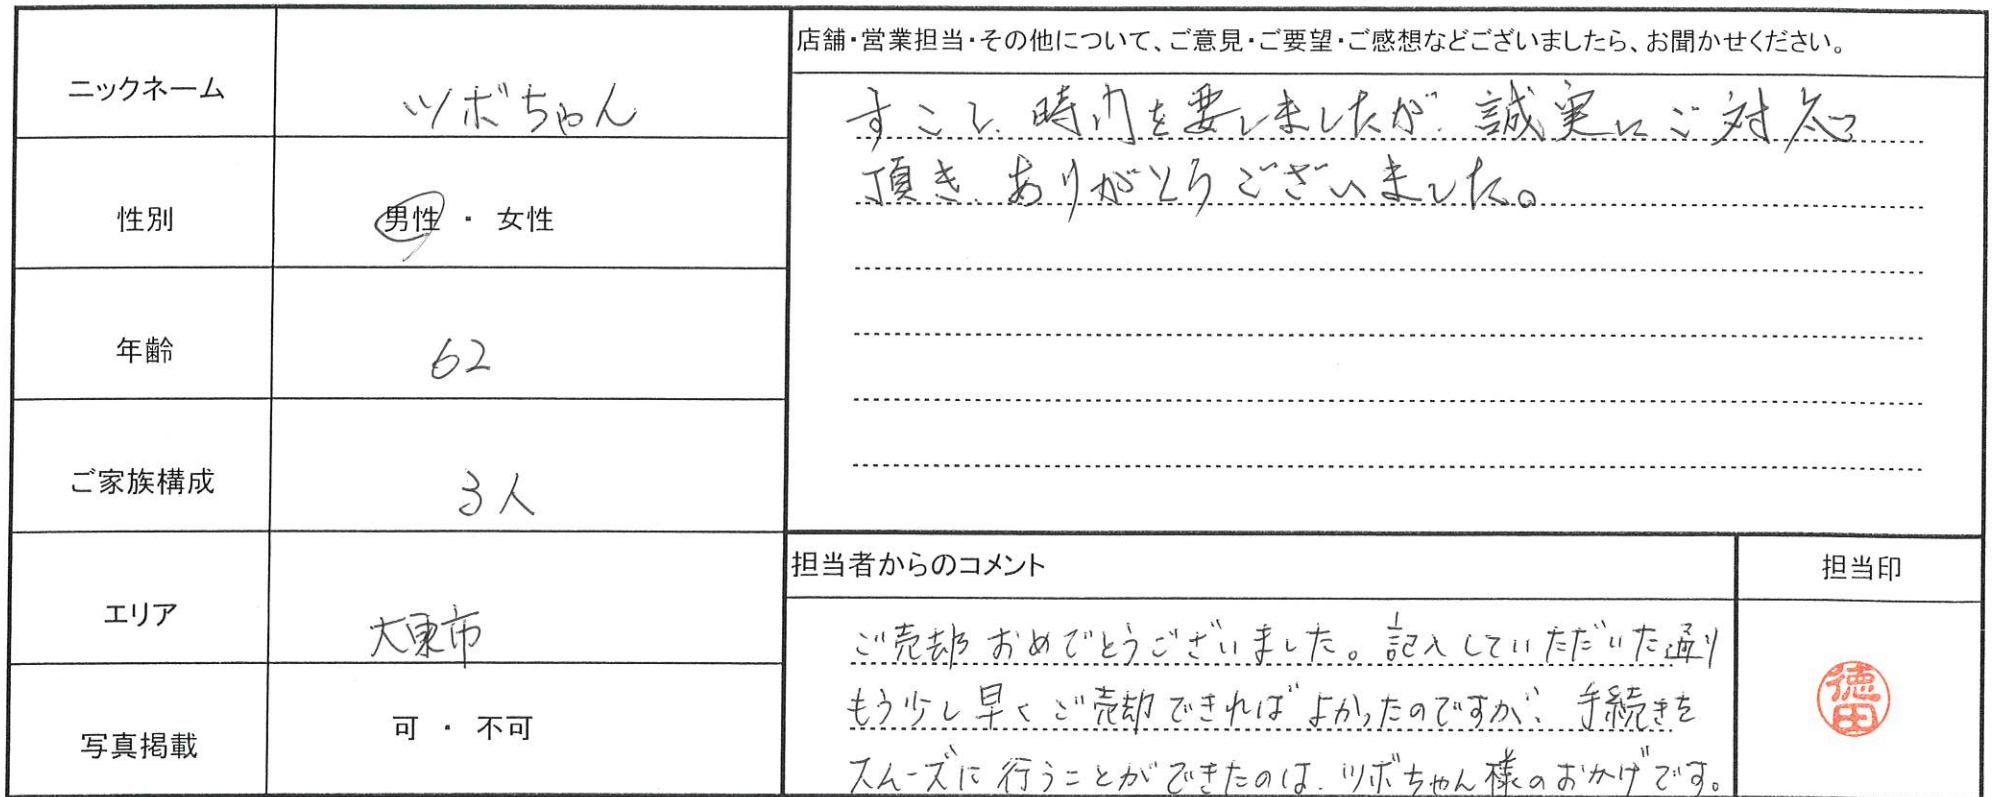 ニックネーム
ツボちゃん
性別
男性 ・ 女性
年齢
62
ご家族構成
3人
エリア
大東市
写真掲載
可 ・ 不可
店舗・営業担当・その他について、ご意見・ご要望・ご感想などございましたら、お聞かせください。
すこし、時間を要しましたが、誠実にご対応
頂き、ありがとうございました。
担当者からのコメント
ご売却おめでとうございました。記入していただいた通り
もう少し早くご売却できればよかったのですが、手続きを
スムーズに行うことができたのは、ツボちゃん様のおかげです。
担当印
徳田